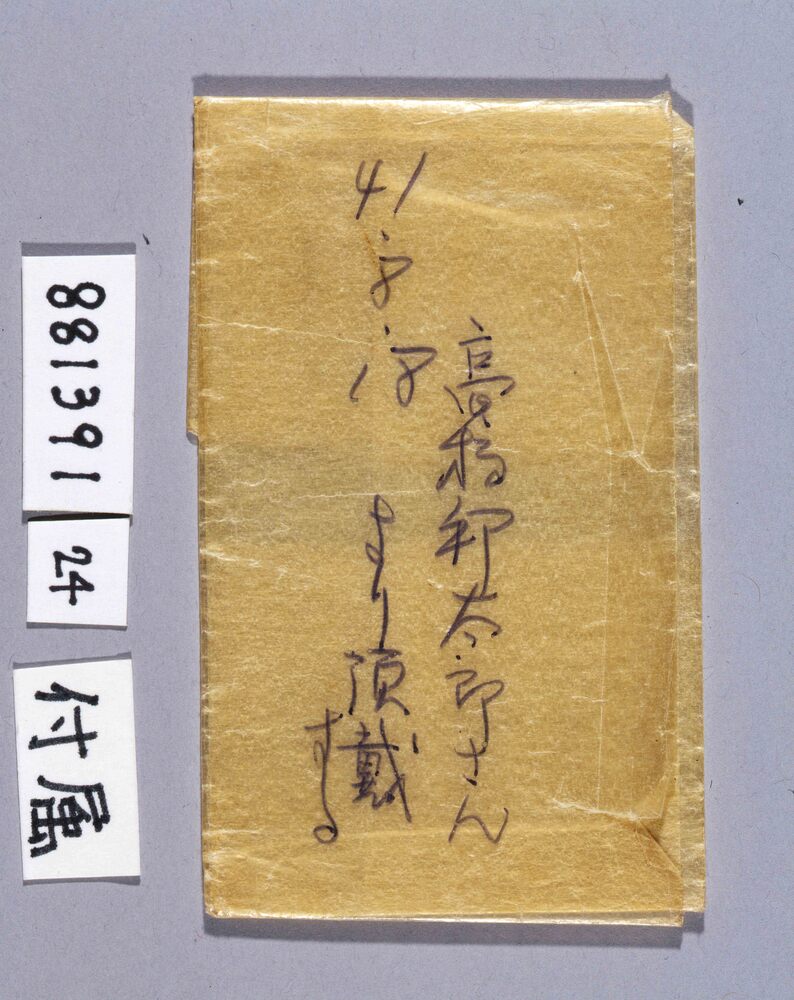 高橋卯太郎さん
41.8.18
より頂戴
する
881391
24
付属